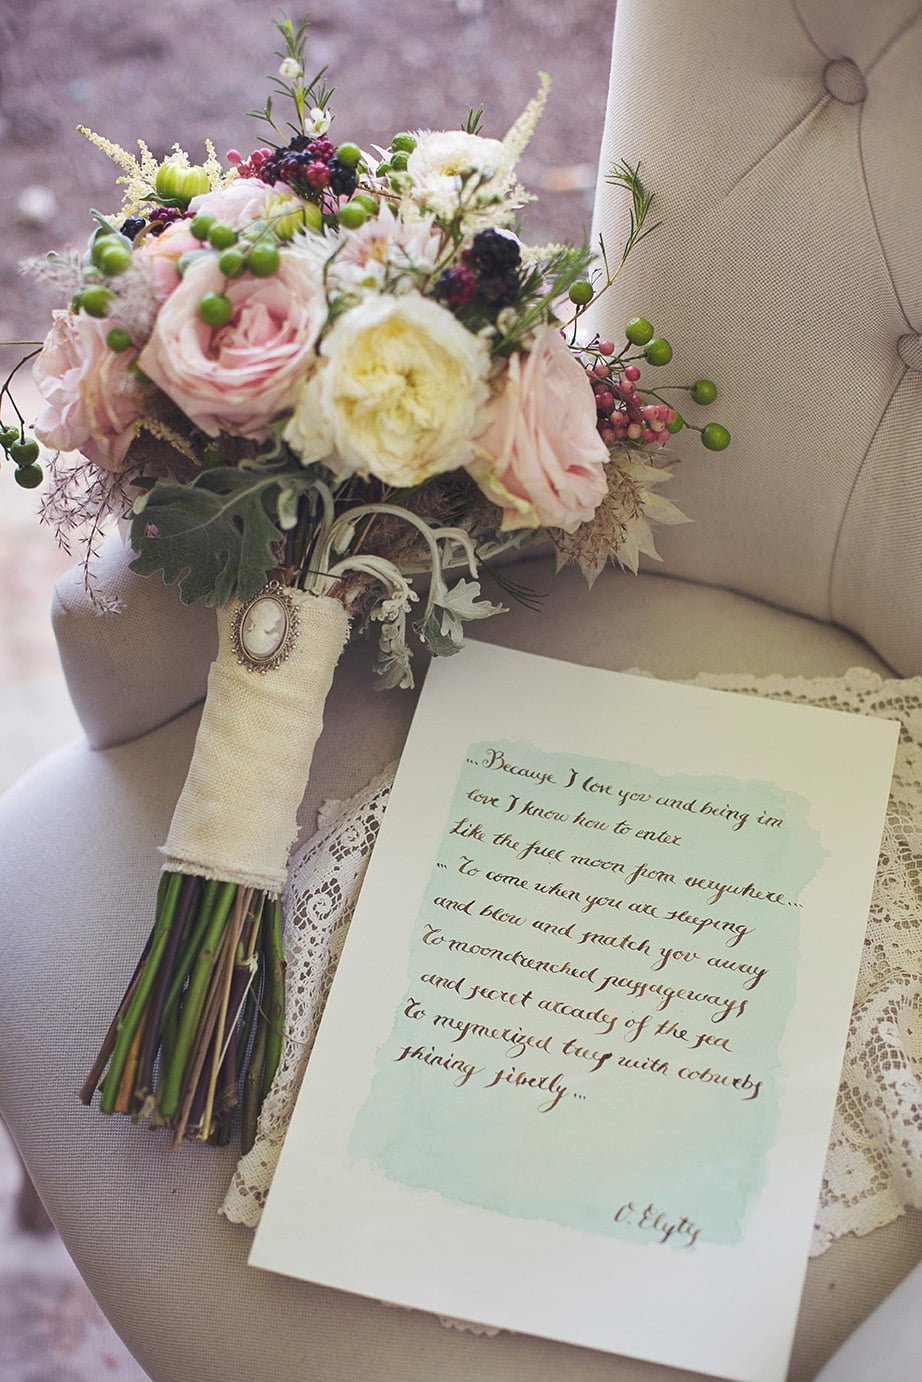 ... Because I love you and being im
love I know how to enter
Like the full moon from verywhere...
... To come when you are sleeping
and blow and snatch you away
To moondrenched passageways
and secret arcades of the sea
To mesmerized trees with cobwebs
shining silverly...
O. Elyty